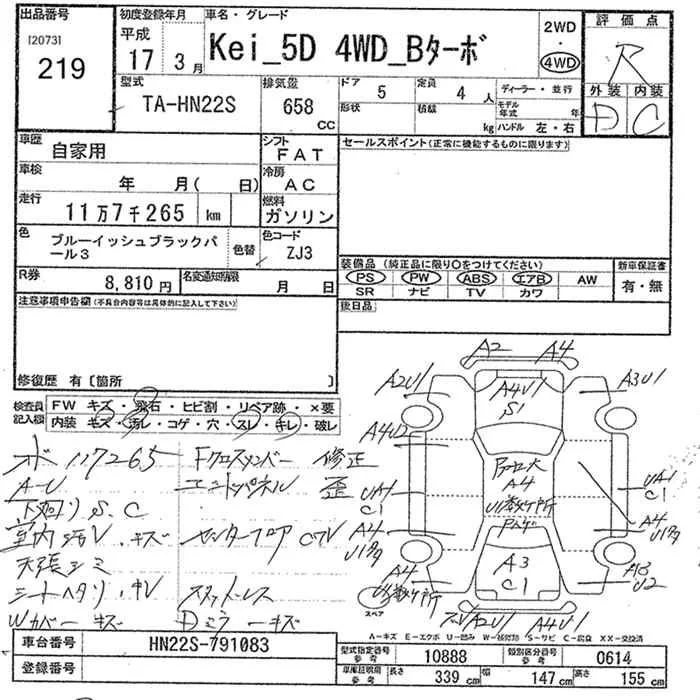 出品番号
[2073]
219
初度登録年月
平成
17 3月
車名・グレード
Kei_5D 4WD_Bターボ
2WD
・
4WD
評価点
R
外装 内装
D C
型式
TA-HN22S
排気量
658
cc
ドア
5
定員
4 人
形状
積載
kg
ディーラー・並行
モデル年式 年
ハンドル 左・右
車歴
自家用
シフト
FAT
セールスポイント(正常に機能するものに限ります)
車検
年 月( 日)
冷房
AC
走行
11万7千265 km
燃料
ガソリン
色
ブルーイッシュブラックパール3
色替
色コード
ZJ3
装備品(純正品に限り〇をつけてください)
PS PW ABS エアB AW
SR ナビ TV カワ
新車保証書
有・無
R券
8,810円
名変通知期限
月 日
後日品
注意事項申告欄(不具合内容等は具体的に記入して下さい)
修復歴 有〔箇所 〕
検査員記入欄
FW キズ・飛石・ヒビ割・リペア跡・×要
内装 キズ・汚レ・コゲ・穴・スレ・キレ・破レ
117265
A-U
下廻りS、C
室内汚V、キズ
天張シミ
シートヘタリ
Wカバーキズ
Fクロスメンバー 修正
エンドパネル 歪
センターフロア
スタッドレス
Dミラーキズ
A2 A4
A2U1
A4U1
S1
A3U1
A4U2
A4
UA1
C1
A4
A4
A3
C1
A4
U2
スペア
A2U1 A4U1
A-キズ E-エクボ U-凹み W-補修跡 S-サビ C-腐食 XX-交換済
車台番号
HN22S-791083
登録番号
型式指定番号
参考
10888
類別区分番号
参考
0614
車庫証明用
参考
長さ
339 cm
幅
147 cm
高さ
155 cm